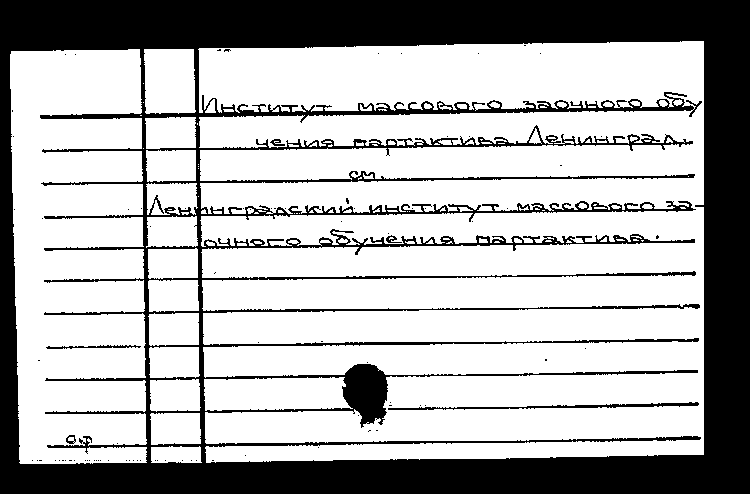 Институт массового заочного обу
чения партактива. Ленинград.
см.
Ленинградский институт массового за-
очного обучения партактива.
оф